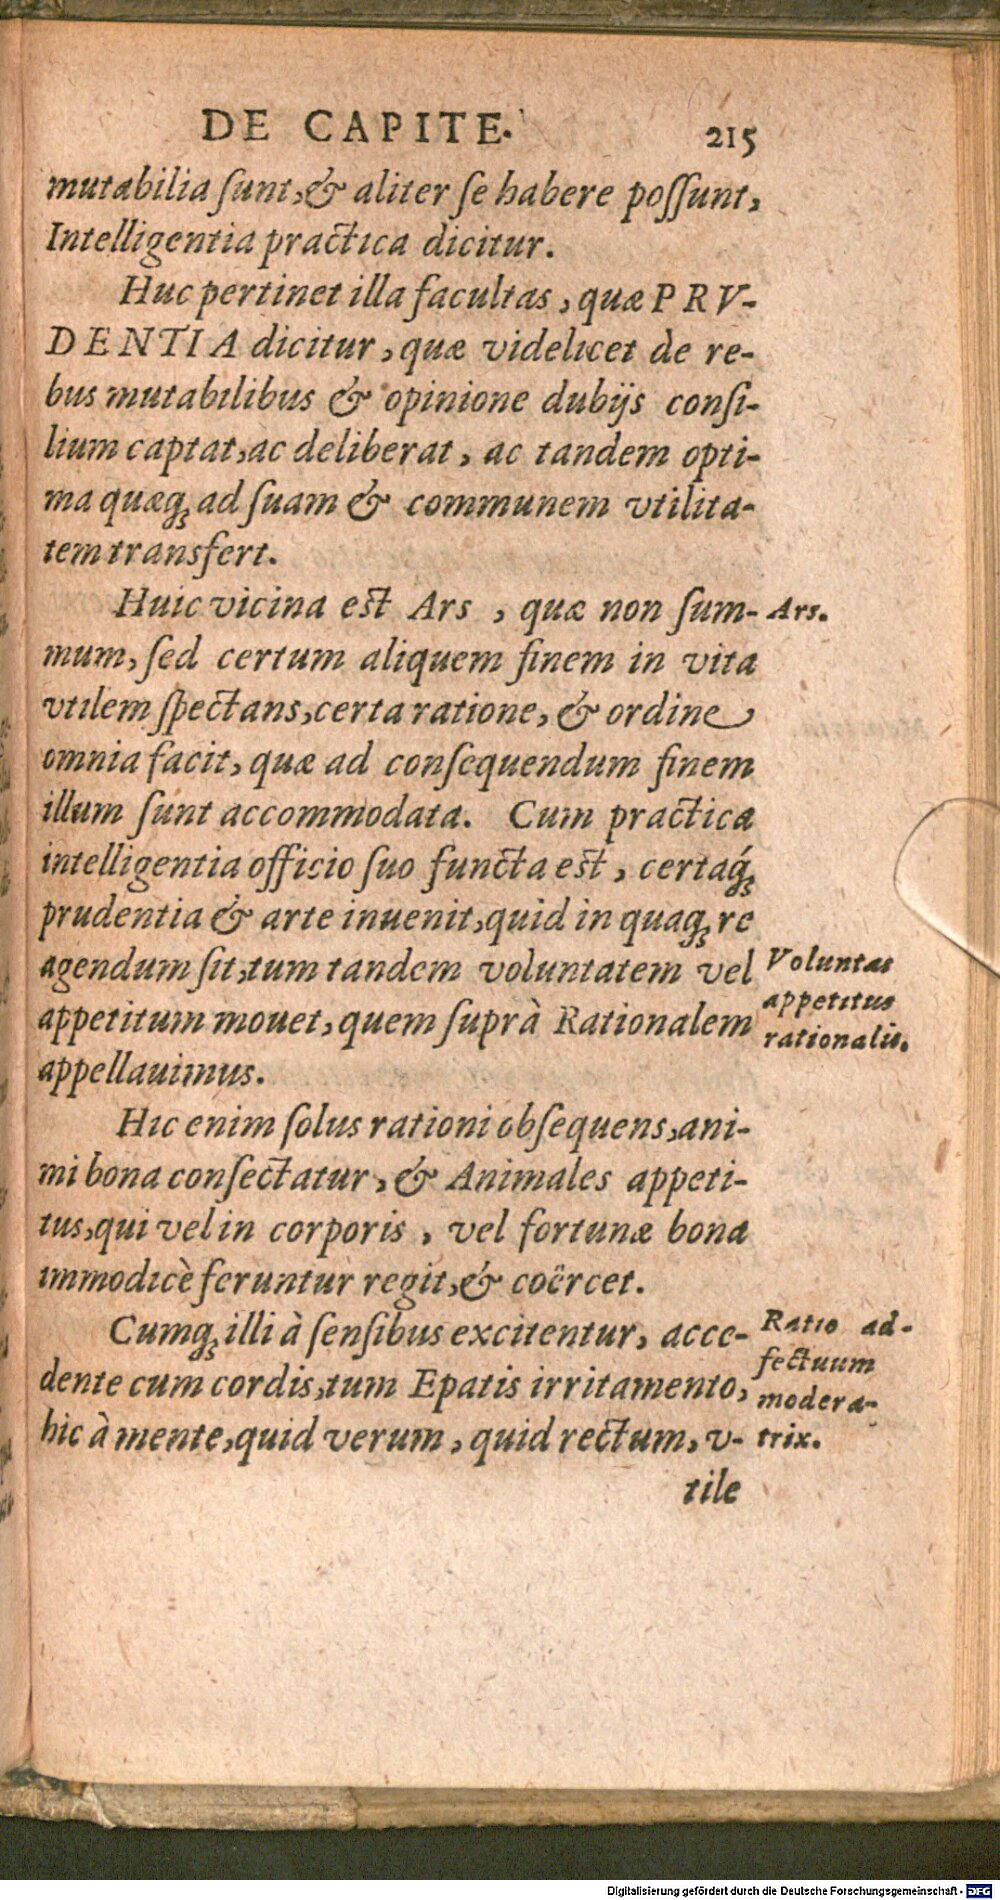 DE CAPITE. 215
mutabilia ſunt, & aliter ſe habere poſſunt,
Intelligentia practica dicitur.
Huc pertinet illa facultas, quæ PRV-
DENTIA dicitur, quæ videlicet de re-
bus mutabilibus & opinione dubijs conſi-
lium captat, ac deliberat, ac tandem opti-
ma quæq; ad ſuam & communem vtilita-
tem transfert.
Huic vicina est Ars, quæ non ſum-
Ars.
mum, ſed certum aliquem finem in vita
vtilem ſpectans, certa ratione, & ordine
omnia facit, quæ ad conſequendum finem
illum ſunt accommodata. Cum practica
intelligentia officio ſuo functa est, certaq́;
prudentia & arte inuenit, quid in quaq; re
agendum ſit, tum tandem voluntatem vel
appetitum mouet, quem ſuprà Rationalem
appellauimus.
Voluntas
appetitus
rationalis.
Hic enim ſolus rationi obſequens, ani-
mi bona conſectatur, & Animales appeti-
tus, qui vel in corporis, vel fortunæ bona
immodicè feruntur regit, & coërcet.
Cumq; illi à ſenſibus excitentur, acce-
dente cum cordis, tum Epatis irritamento,
hic à mente, quid verum, quid rectum, v-
Ratio ad-
fectuum
modera-
trix.
tile
Digitalisierung gefördert durch die Deutsche Forschungsgemeinschaft - DFG